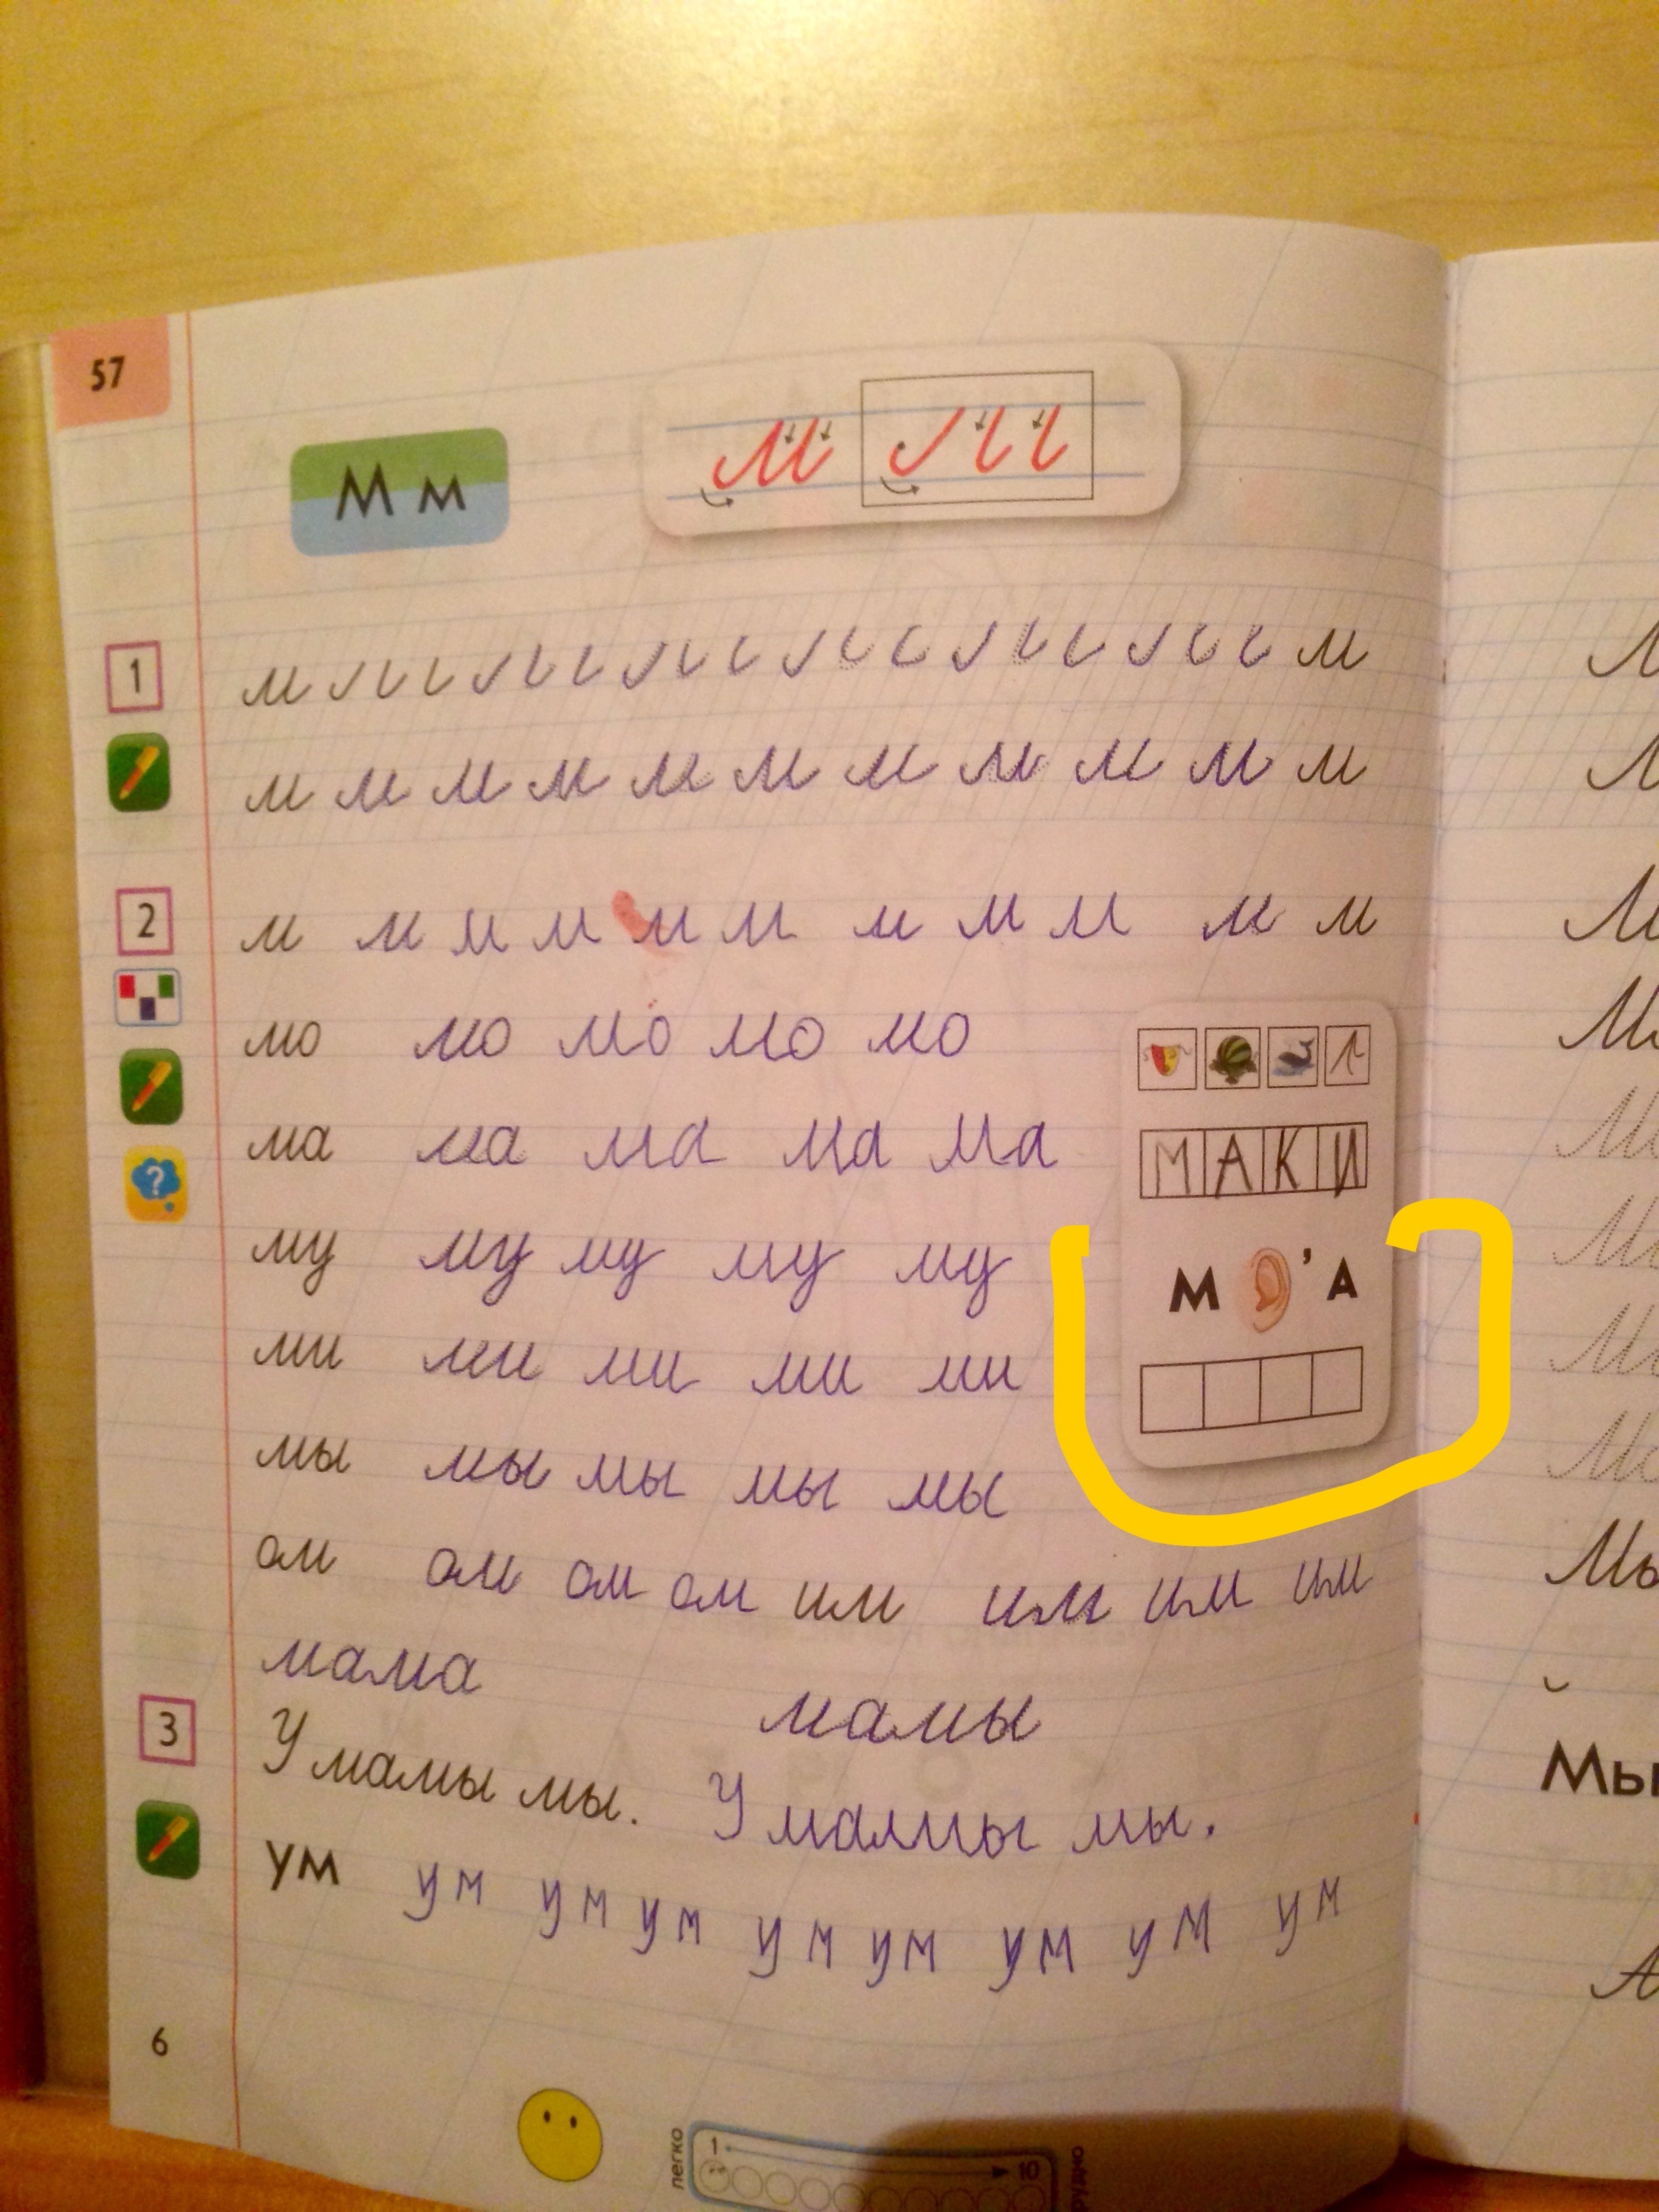 57
М м
м м
1
м м
м м м м м м м м м м м
2
м м м м м м м м м м м
мо мо мо мо мо
ма ма ма ма ма
МАКИ
?
му му му му му
м ' А
ми ми ми ми ми
мы мы мы мы мы
ом ом ом ом им им им им
мама мамы
3
У мамы мы. У мамы мы.
ум ум ум ум ум ум ум ум ум
6
легко 1 10
М
М
М
М
Мы
А